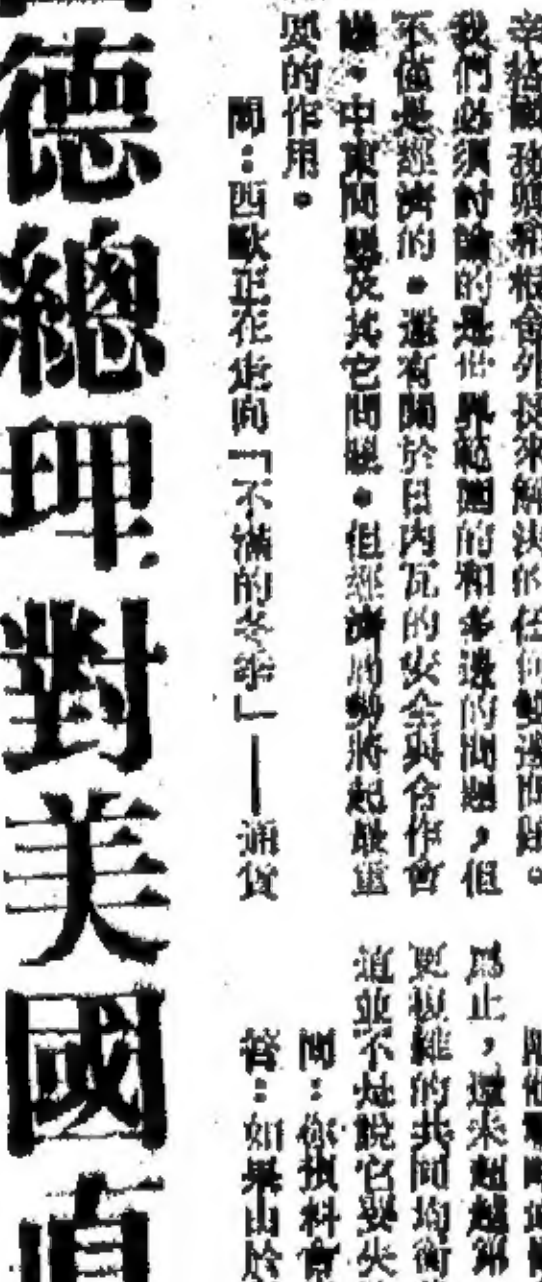 德總理對美國直
我們必須討論的是世界範圍的和多邊的問題，但
不僅是經濟的。還有關於日內瓦的安全與合作會
議。中東問題及其它問題。但經濟局勢將起最重
要的作用。
問：西歐正在走向「不滿的冬季」——通貨
為止，還未超越
更複雜的共同均衡
這並不是說它要失
問：你預料會
答：如果由於